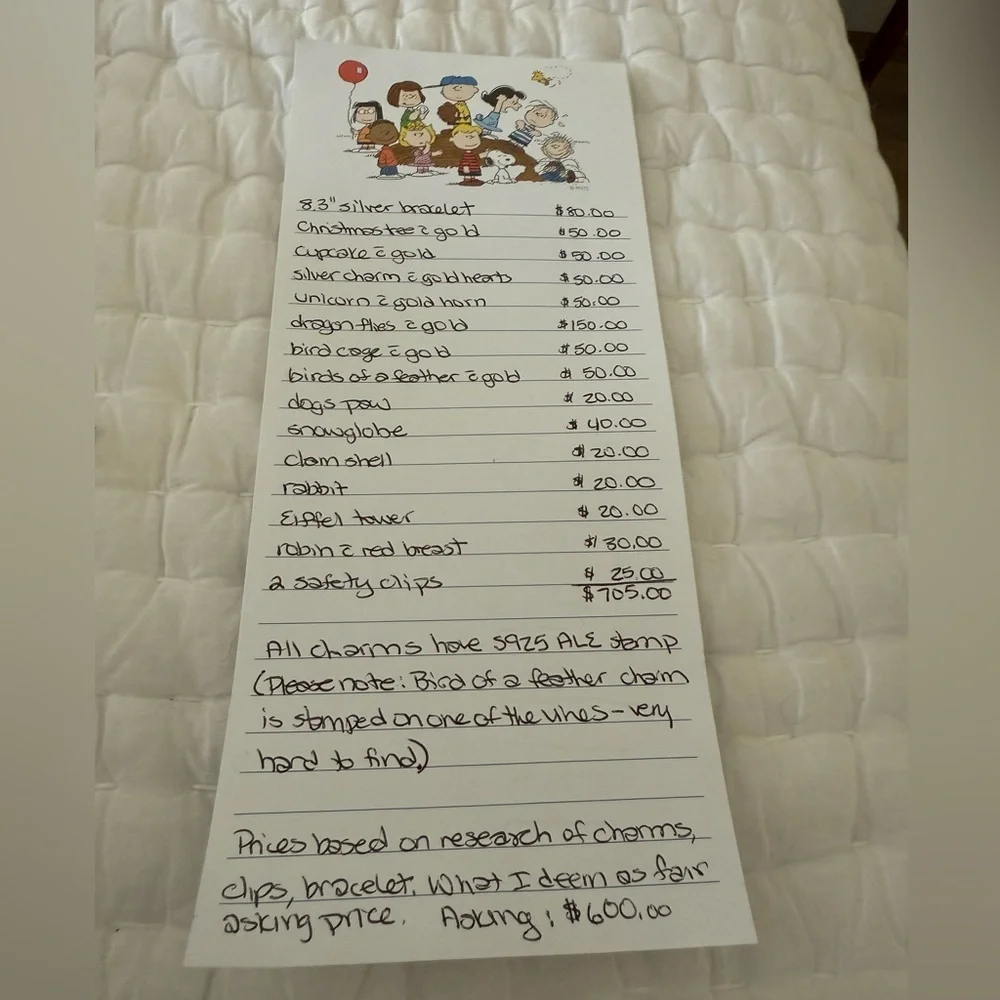 8.3" silver bracelet $80.00
Christmas tee c̄ gold $50.00
cupcake c̄ gold $50.00
silver charm c̄ gold hearts $50.00
unicorn c̄ gold horn $50.00
dragon flies c̄ gold $150.00
bird cage c̄ gold $50.00
birds of a feather c̄ gold $50.00
dogs paw $20.00
snowglobe $40.00
clam shell $20.00
rabbit $20.00
Eiffel tower $20.00
robin c̄ red breast $30.00
2 safety clips $25.00
$705.00
All charms have S925 ALE stamp
(Please note: Bird of a feather charm
is stamped on one of the vines - very
hard to find.)
Prices based on research of charms,
clips, bracelet. What I deem as fair
asking price. Asking: $600.00